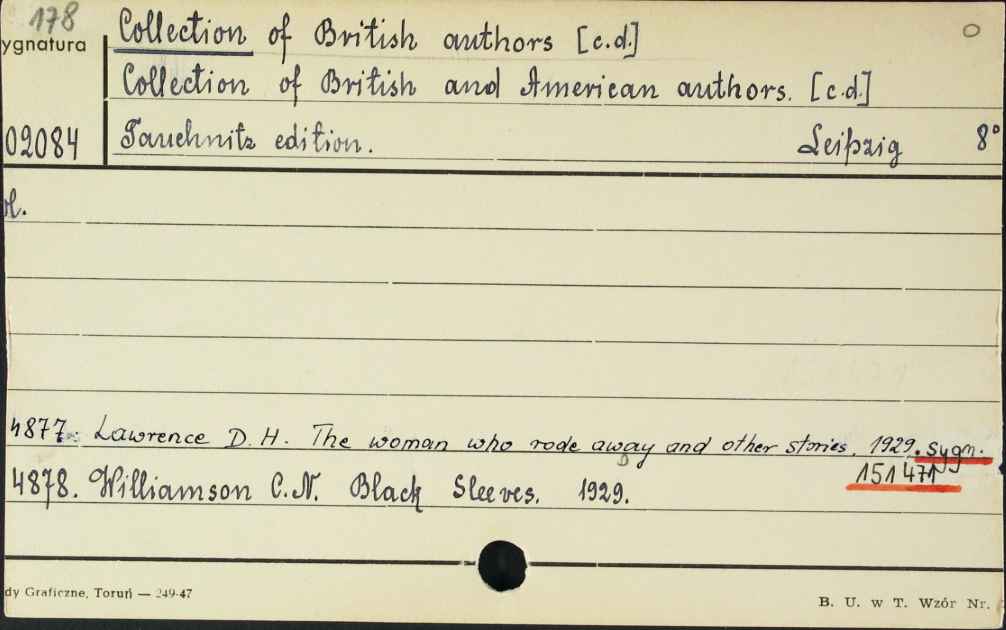 178
ygnatura
Collection of British authors [c.d.]
Collection of British and American authors. [c.d.]
02084
Tauchnitz edition. Leipzig 8°
ol.
4877. Lawrence D. H. The woman who rode away and other stories. 1929. sygn.
151471
4878. Williamson C. N. Black Sleeves. 1929.
dy Graficzne, Toruń — 249-47
B. U. w T. Wzór Nr.